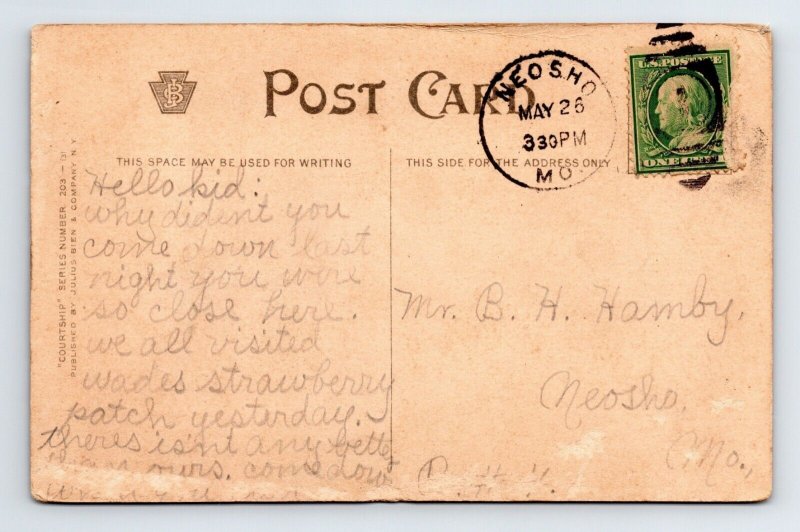 POST CARD
NEOSHO
MAY 26
330PM
MO.
U.S. POSTAGE
ONE
THIS SPACE MAY BE USED FOR WRITING
THIS SIDE FOR THE ADDRESS ONLY
"COURTSHIP" SERIES NUMBER 203-131
PUBLISHED BY JULIUS BIEN & COMPANY N.Y.
Hello kid:
why did'nt you
come down last
night you were
so close here.
we all visited
wades strawberry
patch yesterday.
theres isn't any
than ours. come
Mr. B. H. Hamby,
Neosho,
Mo.,